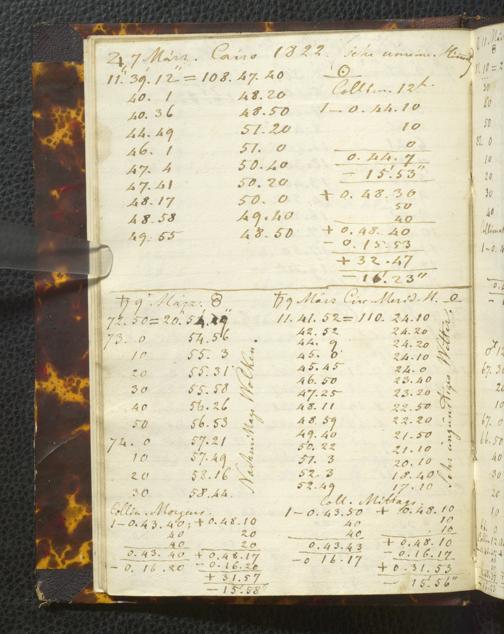 ♃ 7 März. Cairo 1822. Sehr
11.39.12" = 108.47.40 ☉
40. 1 48.20 Collim. 12h
40.36 48.50 1 - 0.44.10
44.49 51.20 10
46. 1 51. 0 0
47. 4 50.40 0.44.7
47.41 50.20 - 15.53"
48.17 50. 0 + 0.48.30
48.58 49.40 50
49.55 48.50 40
+ 0.48.40
- 0.15.53
+ 32.47
- 16.23"
♄ 9 März.
72.50 = 20.54.29
73. 0 54.56
10 55. 3
20 55.31
30 55.58
40 56.26
50 56.53
74. 0 57.21
10 57.49
20 58.16
30 58.44
Nachmittag Wolken.
Collim. Morgens.
1 - 0.43.40; + 0.48.10
40 20
40 20
0.43.40 + 0.48.17
- 0.16.20 - 0.16.20
+ 31.57
- 15.58"
♄ 9 März Circ. Merid. H. ☉
11.41.52 = 110. 24.10
42.52 24.20
44. 9 24.20
45. 0 24.10
45.45 24.0
46.50 23.40
47.25 23.20
48.11 22.50
48.59 22.20
49.40 21.50
50.22 21.10
51. 3 20.10
52. 3 18.40
52.49 17.10
Sehr ungünstiges Wetter.
Coll. Mittags.
1 - 0.43.50 + 0.48.10
40 10
40 10
0.43.43 + 0.48.10
- 0 16.17 - 0.16.17
+ 0.31.53
- 15.56"